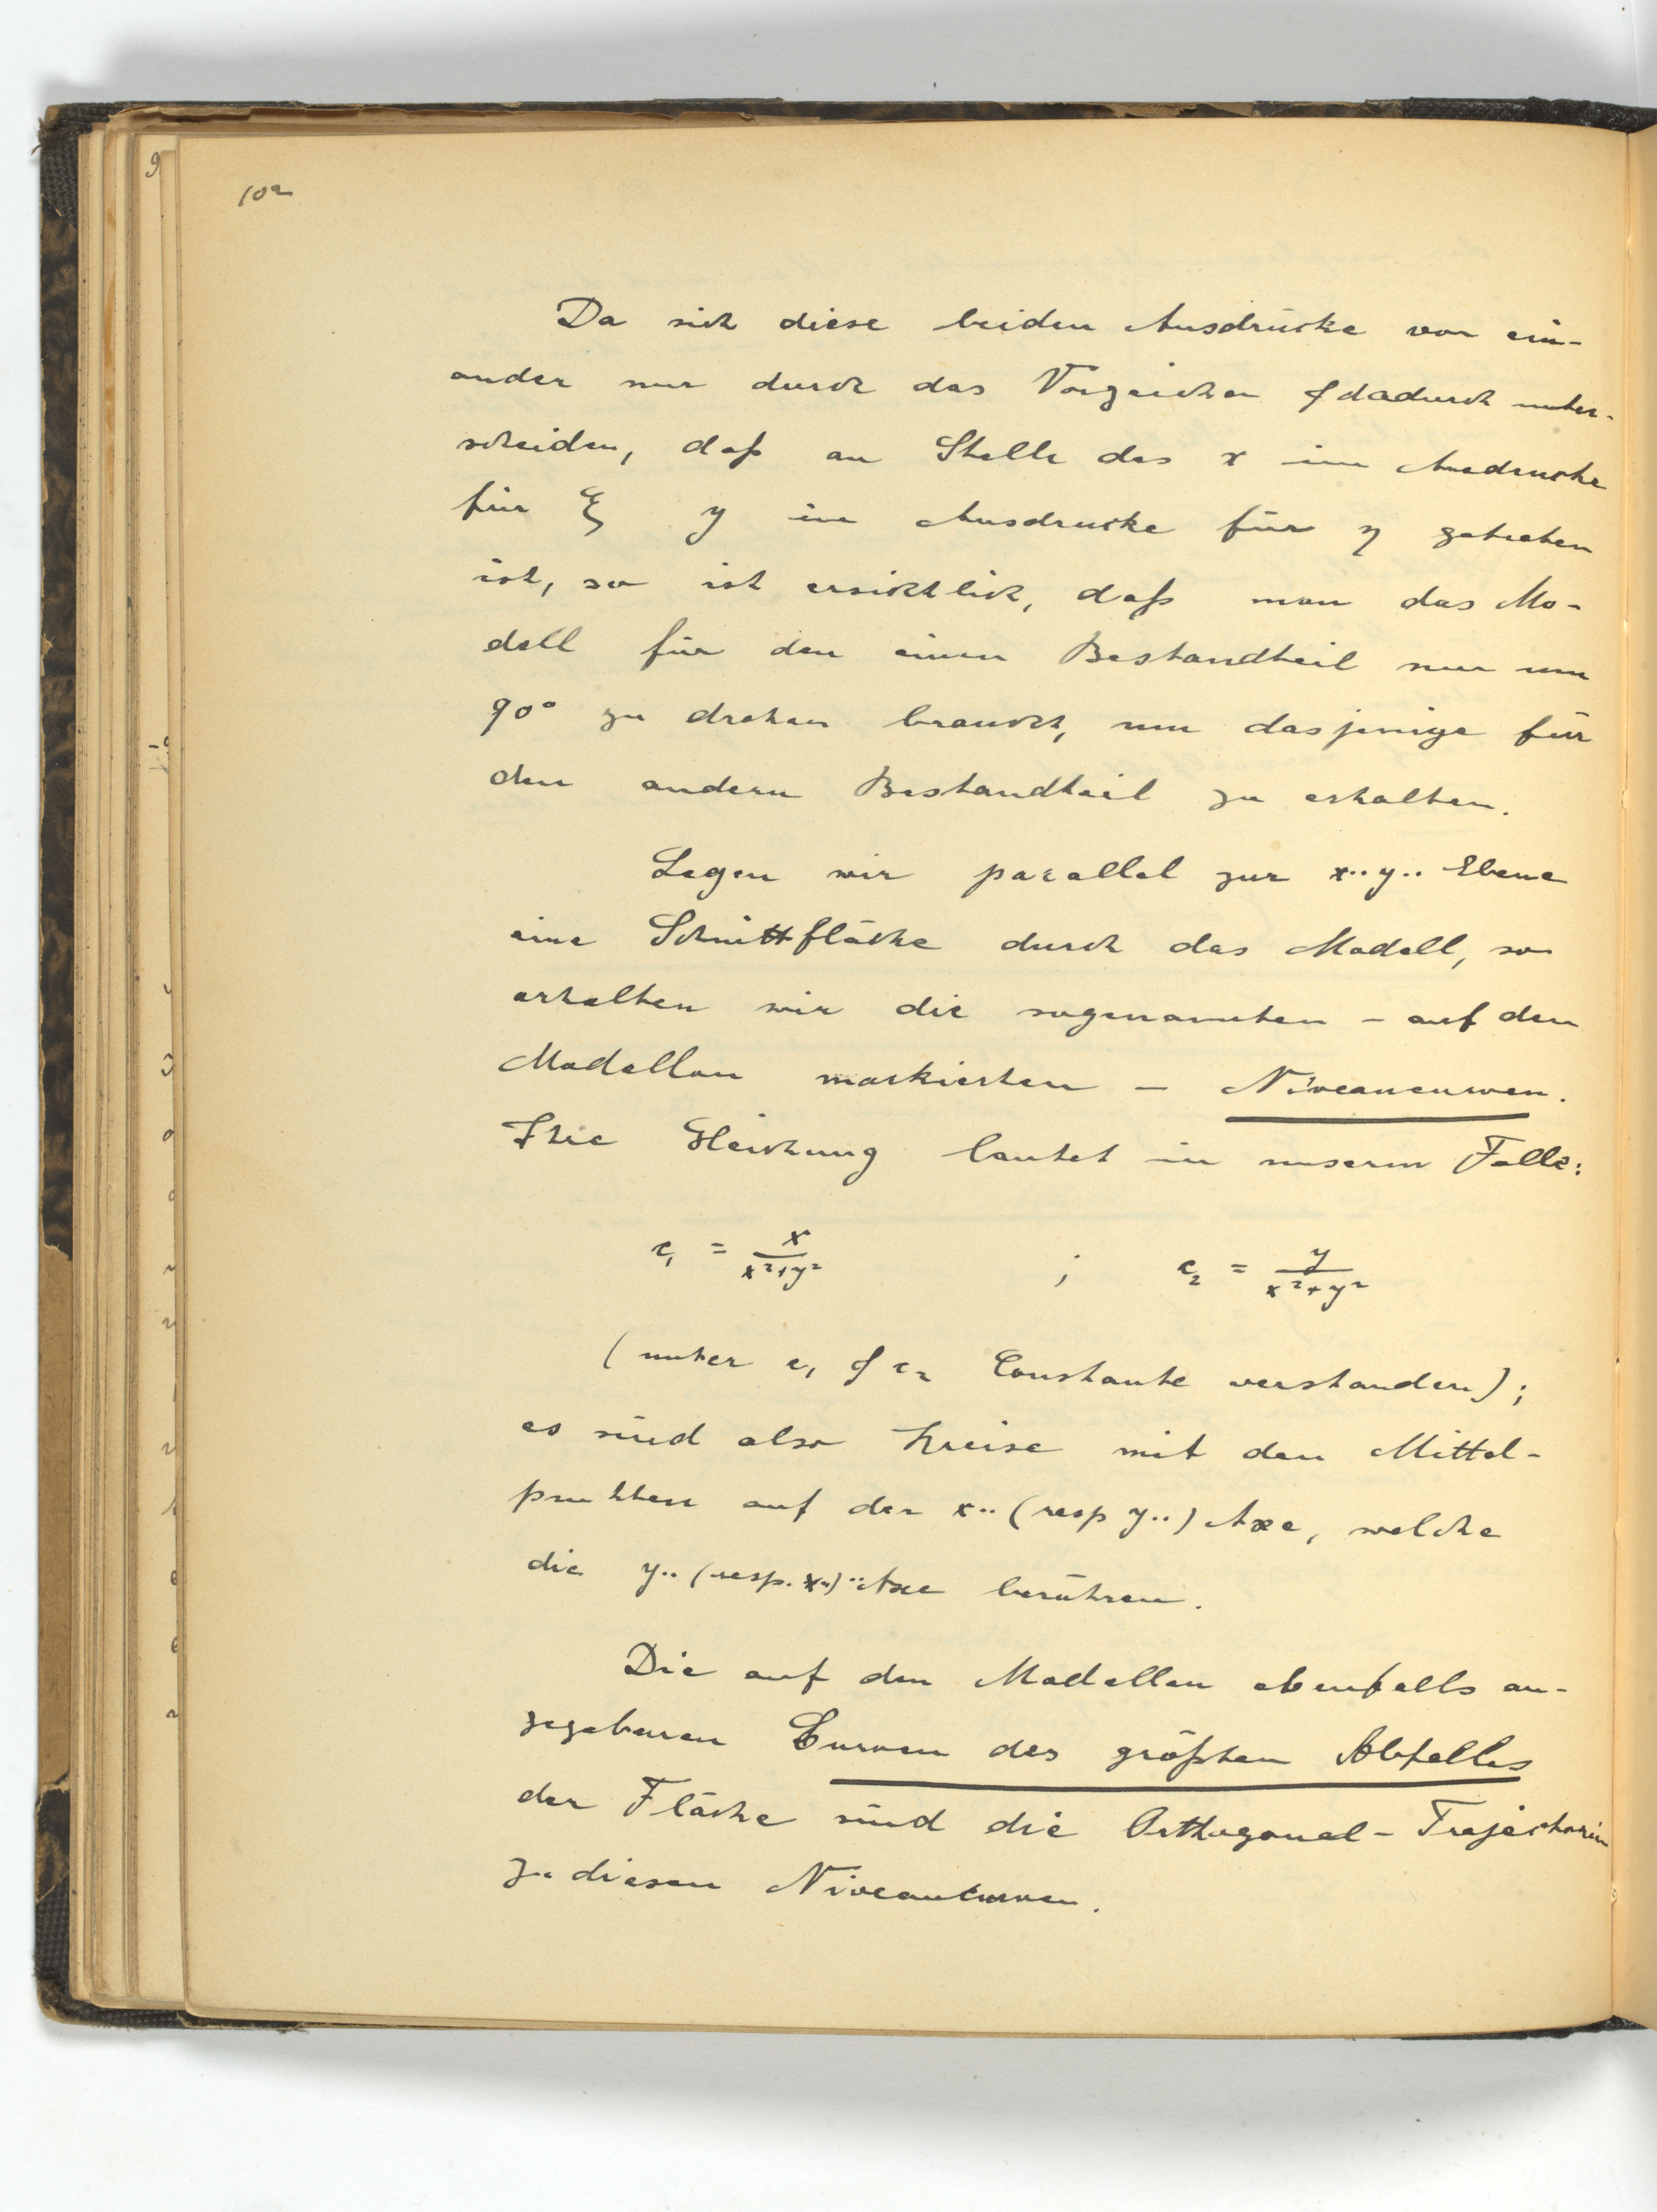 10a
Da sich diese beiden Ausdrücke von ein-
ander nur durch das Vorzeichen & dadurch unter-
scheiden, daß an Stelle des x im Ausdrucke
für ξ y im Ausdrucke für η getreten
ist, so ist ersichtlich, daß man das Mo-
dell für den einen Bestandteil nur um
90° zu drehen braucht, um dasjenige für
den andern Bestandteil zu erhalten.
Legen wir parallel zur x·· y·· Ebene
eine Schnittfläche durch das Modell, so
erhalten wir die sogenannten – auf den
Modellen markierten – Niveaucurven.
Ihre Gleichung lautet in unserm Falle:
c₁ = x/(x²+y²) ; c₂ = y/(x²+y²)
(unter c₁ & c₂ Constante verstanden);
es sind also Kreise mit den Mittel-
punkten auf der x·· (resp y··) Axe, welche
die y·· (resp. x··) ·· Axe berühren.
Die auf den Modellen ebenfalls an-
gegebenen Curven des größten Abfalles
der Fläche sind die Orthogonal-Trajectorien
zu diesen Niveaucurven.